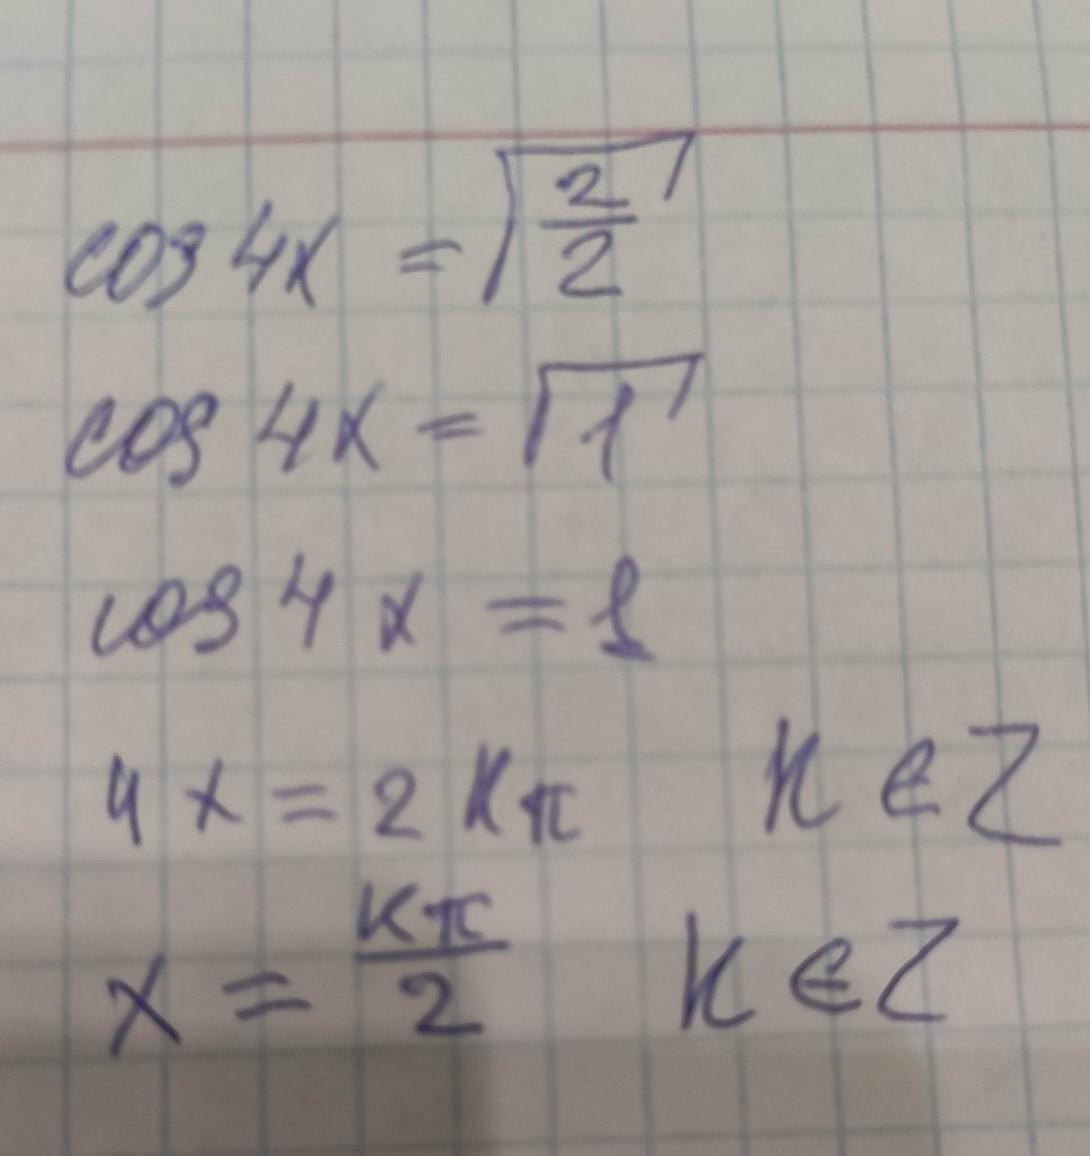 cos 4x = √(2/2)
cos 4x = √1
cos 4x = 1
4x = 2kπ k ∈ Z
x = kπ/2 k ∈ Z